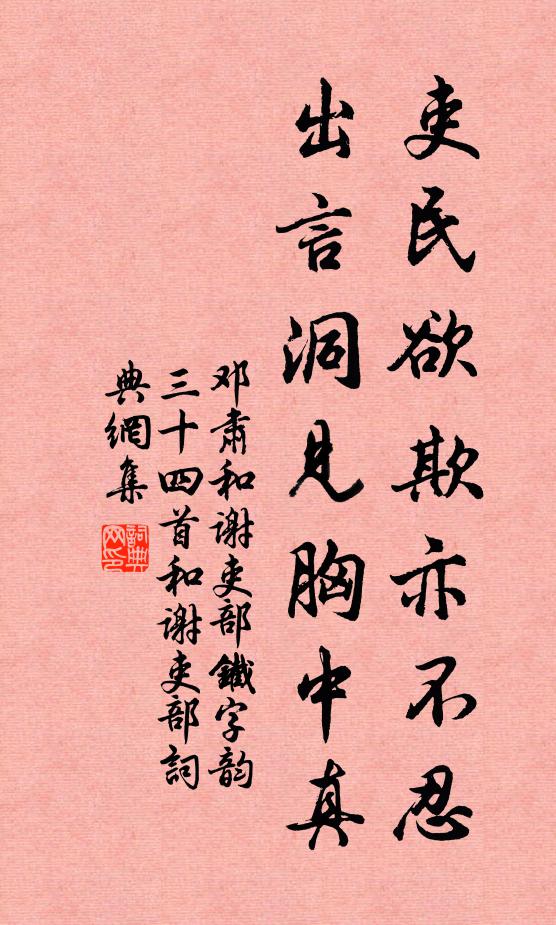 吏民欲欺亦不忍
出言洞见胸中真
邓肃和谢吏部鐵字韵
三十四首和谢吏部詞
典網集
詞典
网印